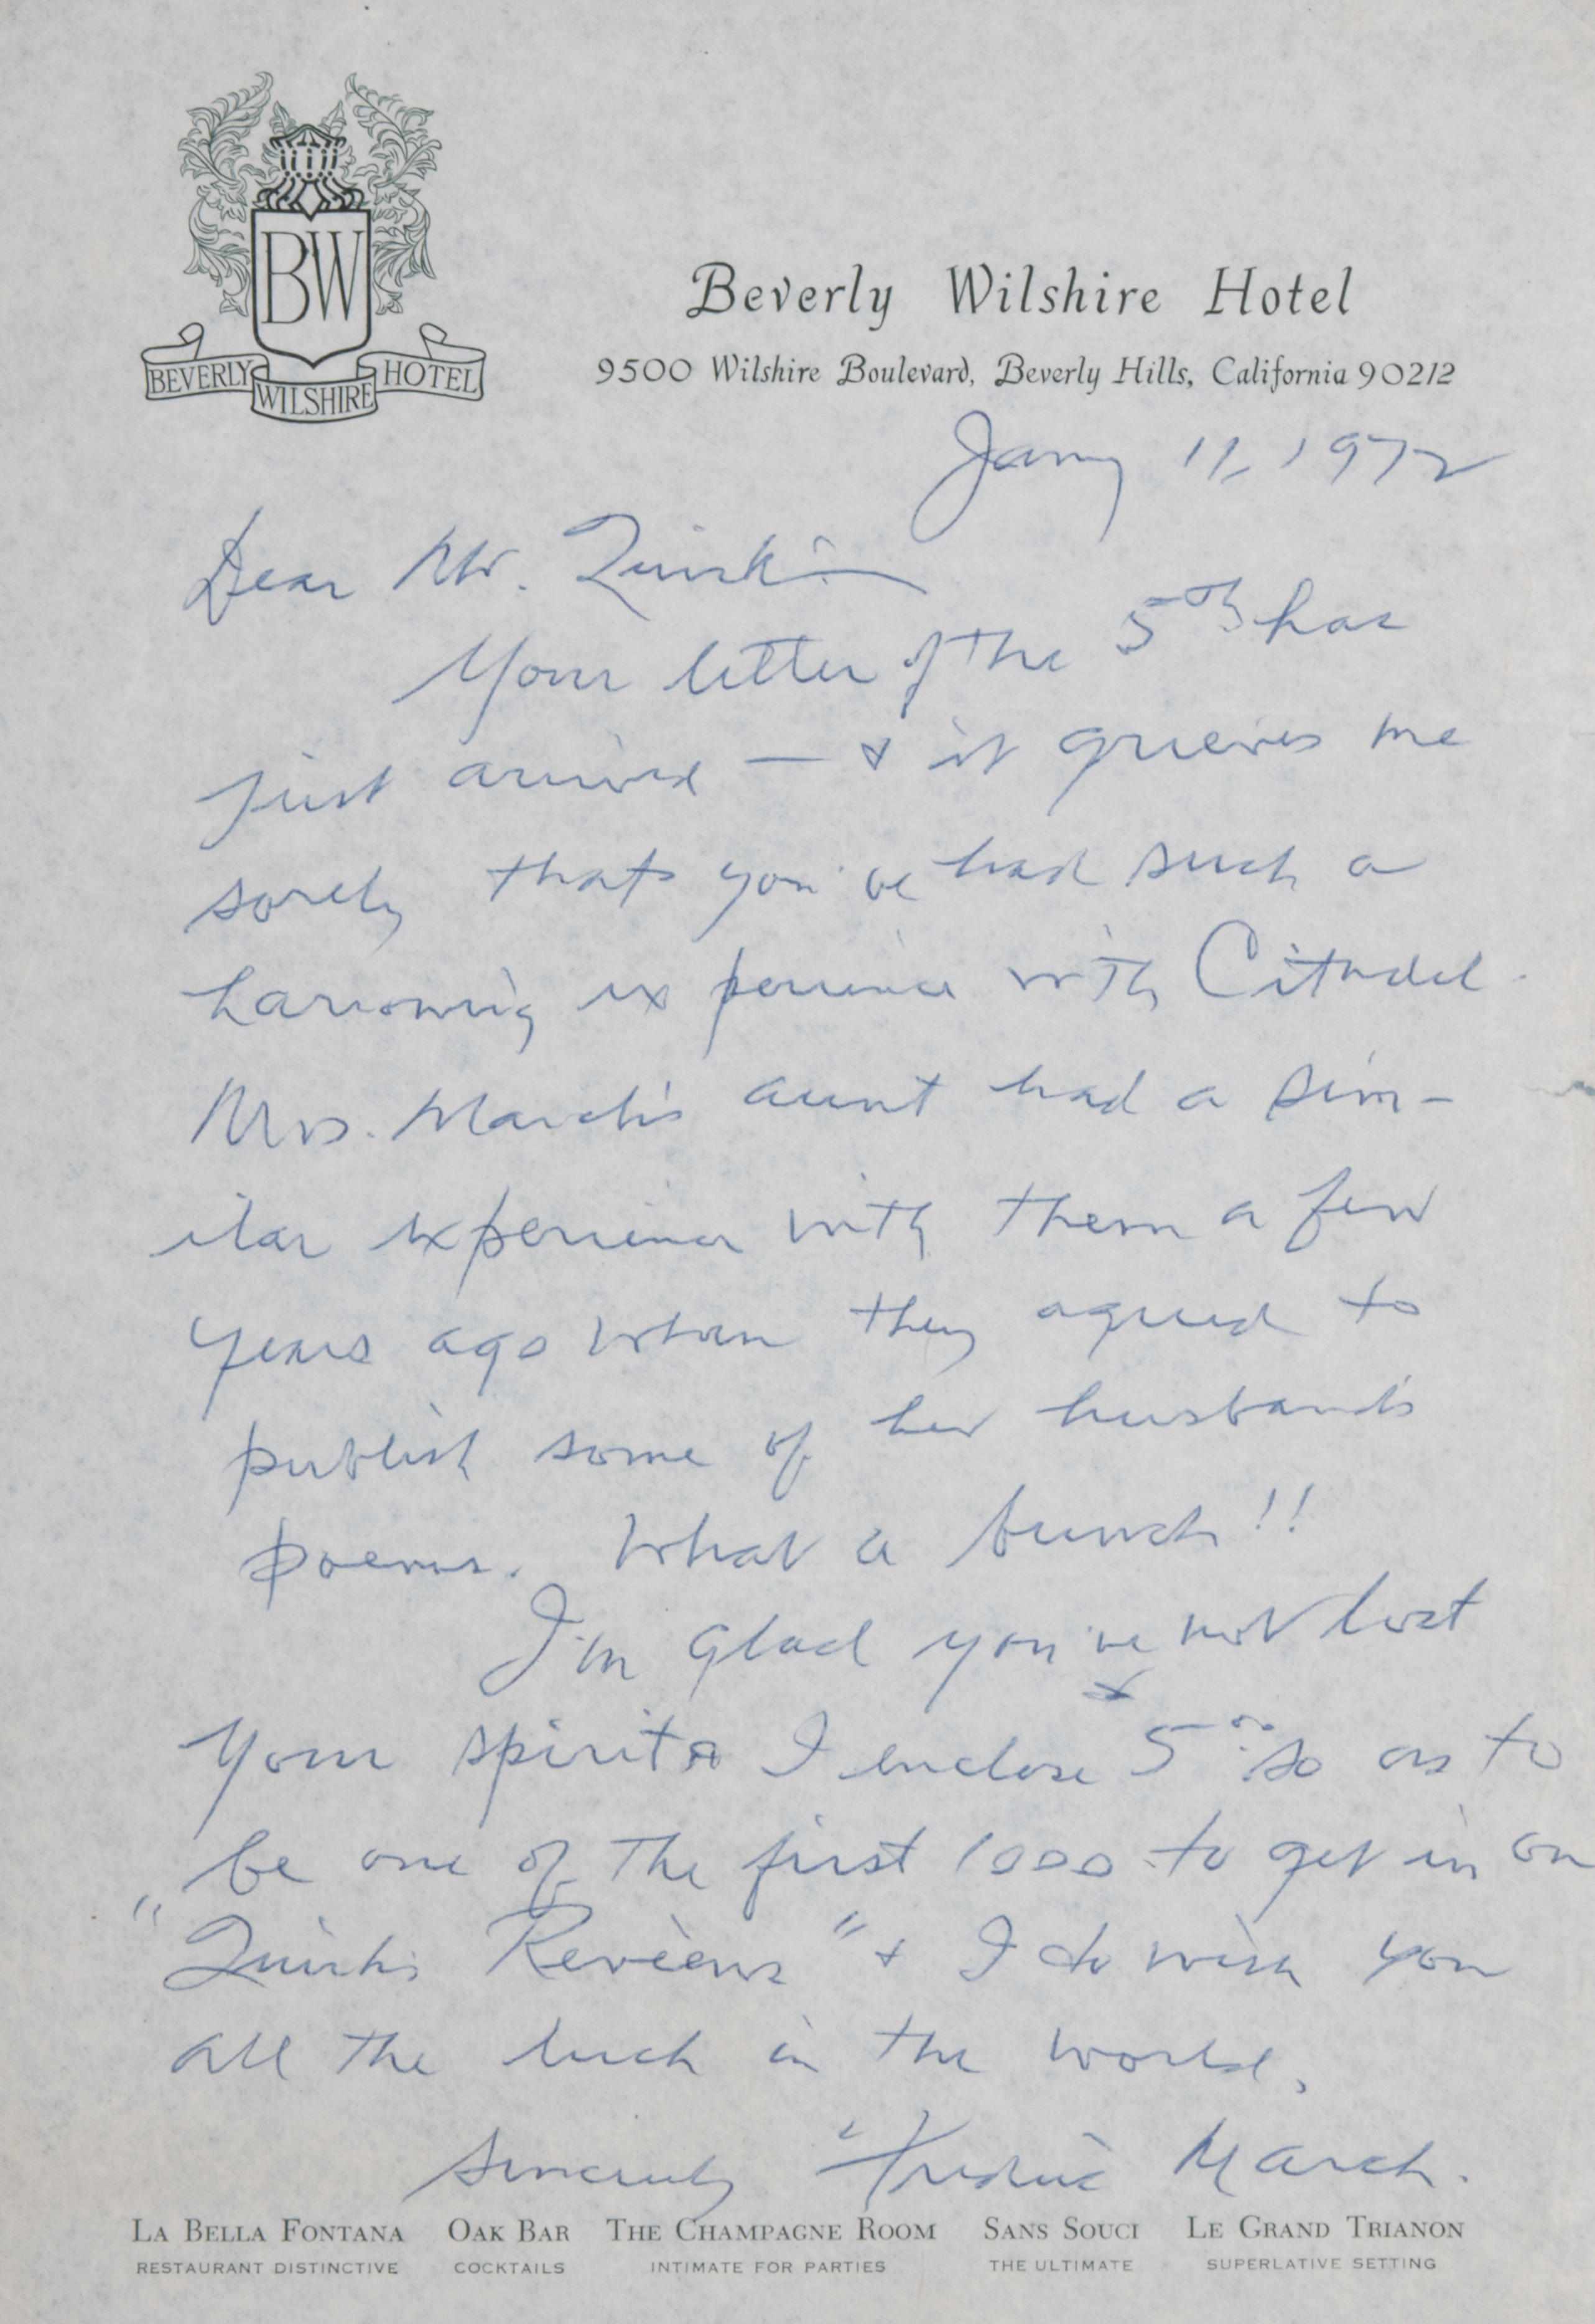 BW
BEVERLY WILSHIRE HOTEL
Beverly Wilshire Hotel
9500 Wilshire Boulevard, Beverly Hills, California 90212
Jany 11, 1972
Dear Mr. Quirk:—
Your letter of the 5th has
just arrived — & it grieves me
sorely that you've had such a
harrowing experience with Citadel.
Mrs. March's aunt had a sim-
ilar experience with them a few
years ago when they agreed to
publish some of her husband's
poems. What a bunch!!
I'm glad you've not lost
your spirit & I enclose 5.00 so as to
be one of the first 1000 to get in on
"Quirk's Reviews" & I do wish you
all the luck in the world.
Sincerely Fredric March.
LA BELLA FONTANA OAK BAR THE CHAMPAGNE ROOM SANS SOUCI LE GRAND TRIANON
RESTAURANT DISTINCTIVE COCKTAILS INTIMATE FOR PARTIES THE ULTIMATE SUPERLATIVE SETTING